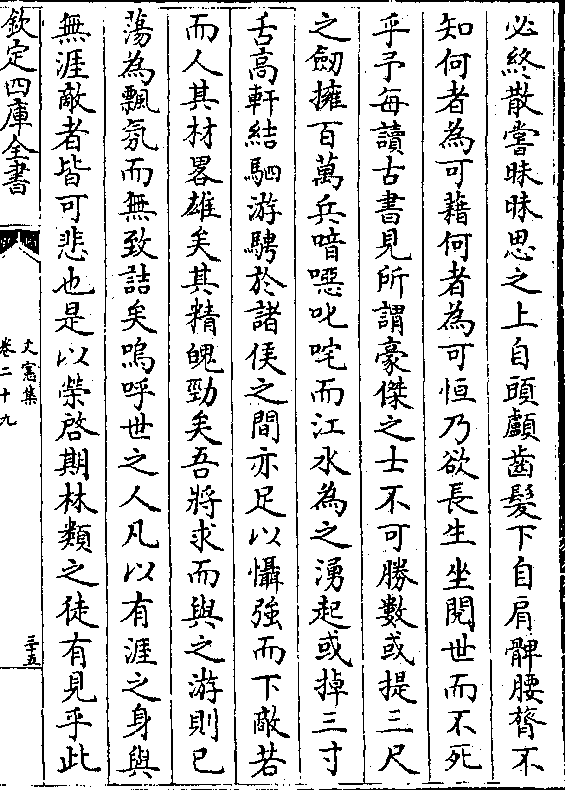 必終散嘗昧昧思之上自頭顱齒髪下自肩髀腰膂不
知何者為可藉何者為可恒乃欲長生坐閱世而不死
乎予每讀古書見所謂豪傑之士不可勝數或提三尺
之劒擁百萬兵喑噁叱咤而江水為之湧起或掉三寸
舌高軒結駟游騁於諸侯之間亦足以懾強而下敵若
而人其材畧雄矣其精魄勁矣吾將求而與之游則已
蕩為飄氛而無致詰矣嗚呼世之人凡以有涯之身與
無涯敵者皆可悲也是以榮啓期林類之徒有見乎此
欽定四庫全書
文憲集
卷二十九
三十五